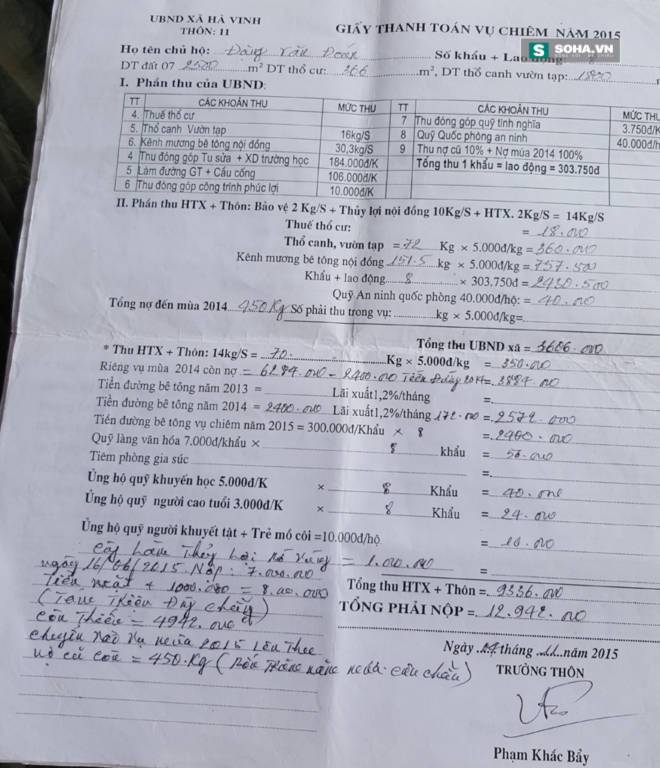 UBND XÃ HÀ VINH
THÔN: 11
GIẤY THANH TOÁN VỤ CHIÊM NĂM 2015
SOHA.VN
Họ tên chủ hộ: Đặng Văn Số khẩu + Lao động
DT đất 07 2500 m² DT thổ cư: 366 m², DT thổ canh vườn tạp: 1800
I. Phần thu của UBND:
TT CÁC KHOẢN THU MỨC THU TT CÁC KHOẢN THU MỨC THU
4. Thuế thổ cư 7 Thu đóng góp quỹ tình nghĩa 3.750đ/K
5. Thổ canh Vườn tạp 16kg/S 8 Quỹ Quốc phòng an ninh 40.000đ/h
6. Kênh mương bê tông nội đồng 30,3kg/S 9 Thu nợ cũ 10% + Nợ mùa 2014 100%
4 Thu đóng góp Tu sửa + XD trường học 184.000đ/K Tổng thu 1 khẩu = lao động = 303.750đ
5 Làm đường GT + Cầu cống 106.000đ/K
6 Thu đóng góp công trình phúc lợi 10.000đ/K
II. Phần thu HTX + Thôn: Bảo vệ 2 Kg/S + Thủy lợi nội đồng 10Kg/S + HTX. 2Kg/S = 14Kg/S
Thuế thổ cư: = 18.000
Thổ canh, vườn tạp = 72 Kg × 5.000đ/kg = 360.000
Kênh mương bê tông nội đồng 151.5 kg × 5.000đ/kg = 757.500
Khẩu + lao động 8 × 303,750đ = 2430.500
Quỹ An ninh quốc phòng 40.000đ/hộ: = 40.000
Tổng nợ đến mùa 2014 450Kg Số phải thu trong vụ: kg × 5.000đ/kg=
Tổng thu UBND xã = 3606.000
* Thu HTX + Thôn: 14kg/S = 70. Kg × 5.000đ/kg = 350.000
Riêng vụ mùa 2014 còn nợ = 6284.000 - 2400.000 Tiền Đường 2014= 3884.000
Tiền đường bê tông năm 2013 = Lãi xuất1,2%/tháng =
Tiền đường bê tông năm 2014 = 2400.000 Lãi xuất1,2%/tháng 172.000 = 2572.000
Tiền đường bê tông vụ chiêm năm 2015 = 300.000đ/Khẩu × 8 = 2400.000
Quỹ làng văn hóa 7.000đ/khẩu × 8 khẩu = 56.000
Tiêm phòng gia súc =
Ủng hộ quỹ khuyến học 5.000đ/K × 8 Khẩu = 40.000
Ủng hộ quỹ người cao tuổi 3.000đ/K × 8 Khẩu = 24.000
Ủng hộ quỹ người khuyết tật + Trẻ mồ côi =10.000đ/hộ = 10.000
Thủy Lợi = 1.000.000 =
ngày 16/06/2015 Nộp: 7.000.000
Tiền mặt + 1000.000 = 8.000.000
Tổng thu HTX + Thôn = 9336.000
TỔNG PHẢI NỘP = 12.942.000
còn Thiếu = 4942.000đ
chuyển vào vụ mùa 2015
nợ cũ còn = 450.Kg
Ngày 24 tháng 11 năm 2015
TRƯỞNG THÔN
Phạm Khắc Bẩy